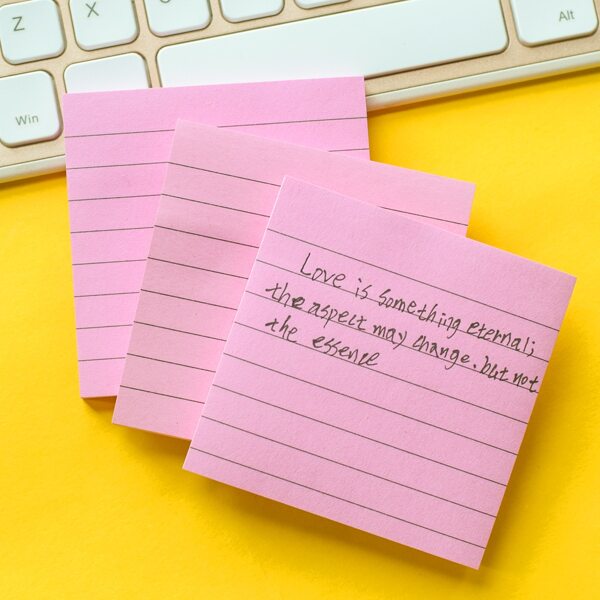 Z
X
Alt
Win
Love is something eternal;
the aspect may change. but not
the essence